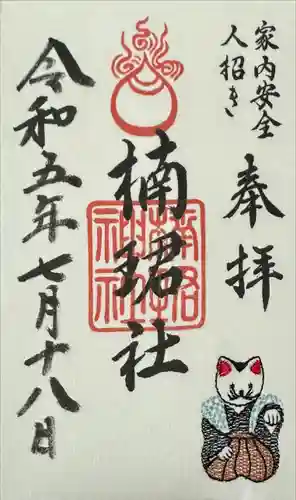 家内安全
人招き
奉拝
楠珺社
令和五年七月十八日